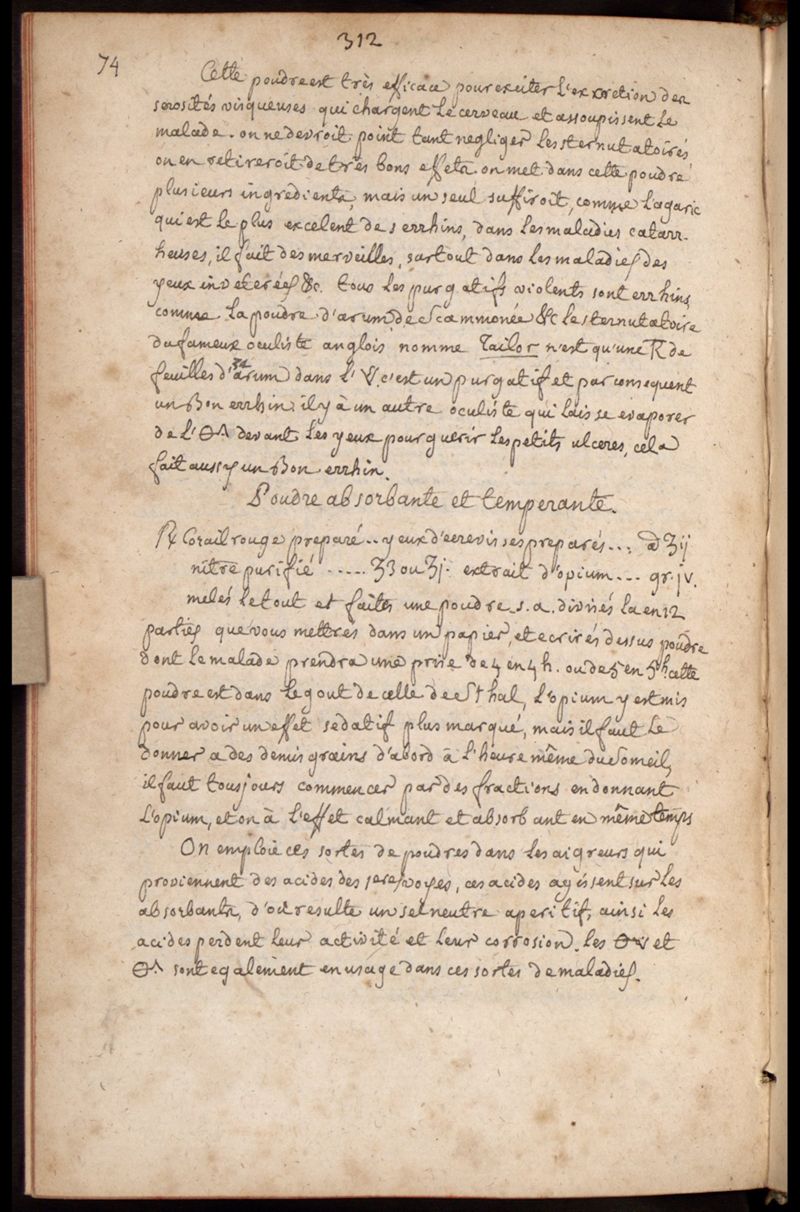 312
74
Cette poudre est très efficace pour exciter l'excretion des
serosités visqueuses qui chargent le cerveau et assoupissent le
malade. on ne devroit point tant negliger les sternutatoirés
on en retireroit de très bons effets. on met dans cette poudre
plusieurs ingredients, mais un seul suffiroit, comme l'agaric
qui est le plus excelent des errhins, dans les maladies catarr-
heuses, il fait des merveilles, surtout dans les maladies des
yeux inveterées &c. tous les purgatifs violents sont errhins
comme la poudre d'arum, de Scammonée &c le sternutatoire
du fameux oculiste anglois nomme Tailor n'est qu'une de
feuilles d'arum dans l' c'est un purgatif et par consequent
un Bon errhin. il y à un autre oculiste qui laisse evaporer
de l' devant les yeux pour guerir les petits ulceres, cela
fait aussy un Bon errhin.
Poudre absorbante et temperante.
℞ Corail rouge preparé .. yeux d'ecrevisses preparés ... ʒij
nitre purifié ..... ʒ3 ou ʒj. extrait d'opium ... gr. jv.
melés le tout et faites une poudre s. a. divisés la en 12
parties que vous mettres dans un papier, et ecrirés dessus poudre
dont le malade prendra une prise de 4 en 4 h. ou de 5 en 5 h. cette
poudre est dans le gout de celle de Sthal, l'opium y est mis
pour avoir un effet sedatif plus marqué, mais il faut le
donner a des demis grains d'abord à l'heure même du Someil,
il faut tousjours commencer par des fractions en donnant
l'opium, et on à l'effet calmant et absorbant en même temps
On emploie ces sortes de poudres dans les aigreurs qui
proviennent des acides des 1eres voyes, ces acides agissent sur les
absorbants, d'où resulte un sel neutre aperitif, ainsi les
acides perdent leur activité et leur corrosion. les et
sont egalement en usage dans ces sortes de maladies.